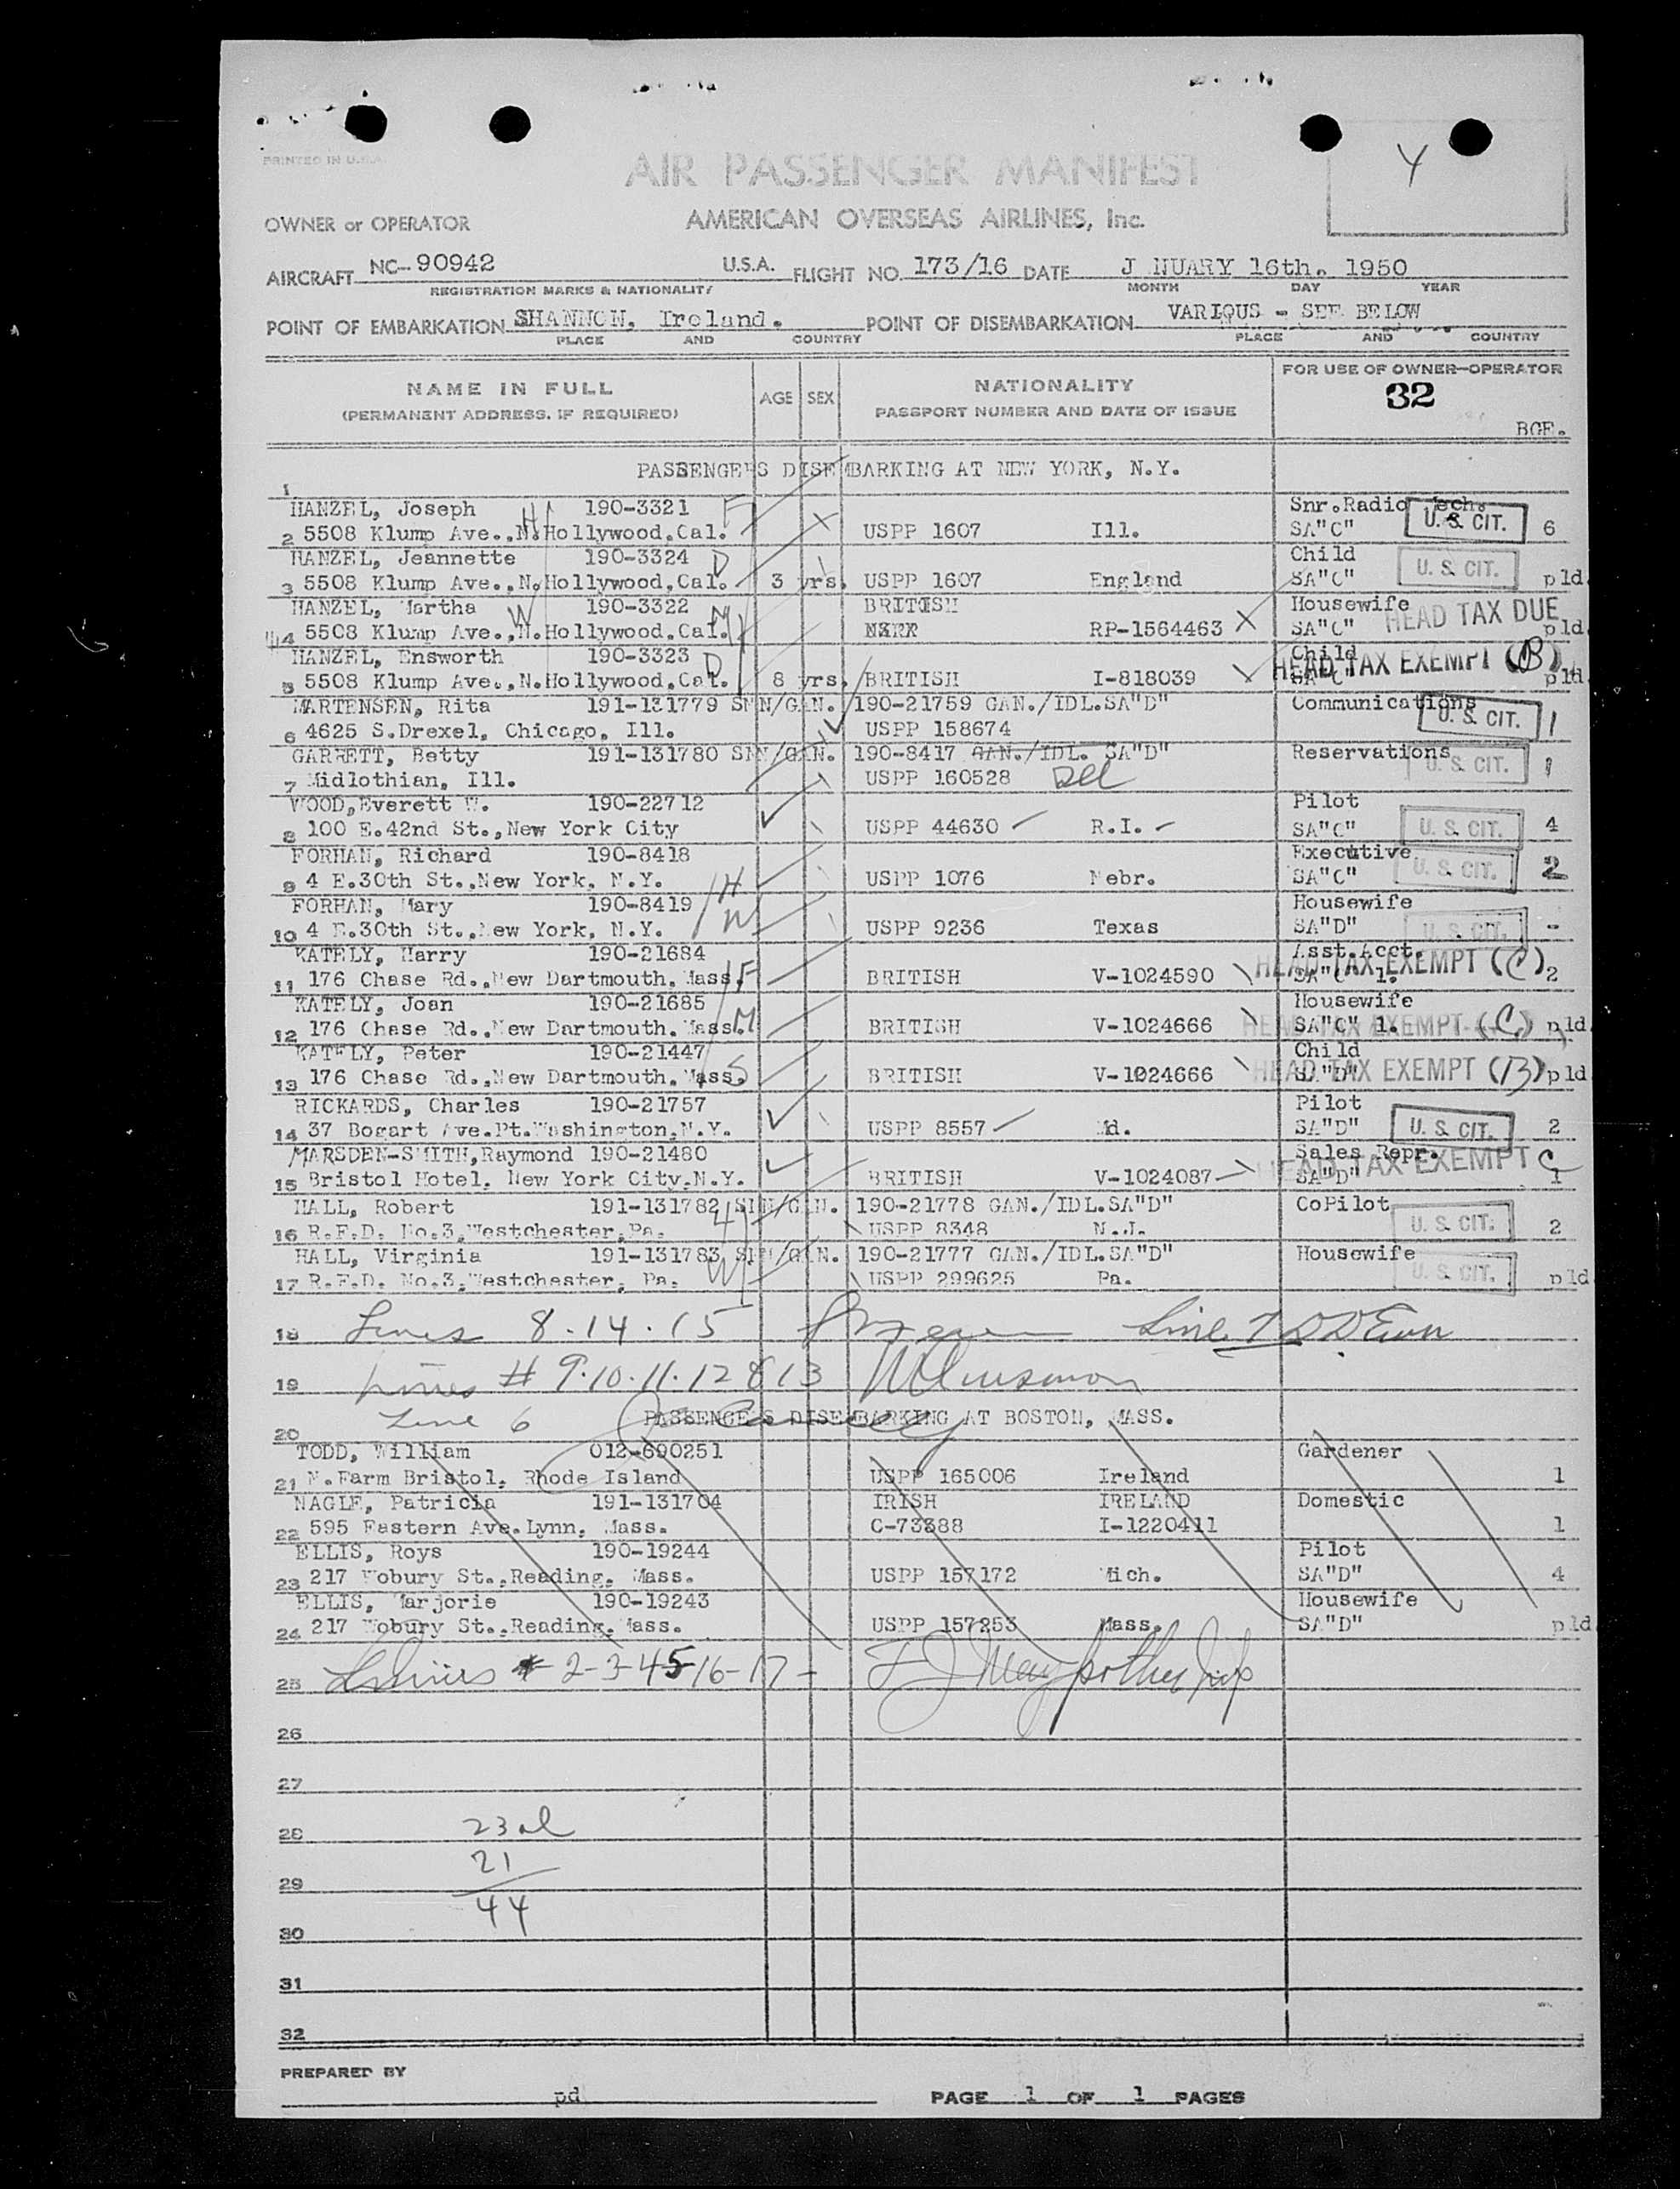 PRINTED IN U.S.A.
4
AIR PASSENGER MANIFEST
OWNER or OPERATOR AMERICAN OVERSEAS AIRLINES, Inc.
AIRCRAFT NC-90942 U.S.A. FLIGHT NO. 173/16 DATE J NUARY 16th. 1950
REGISTRATION MARKS & NATIONALITY MONTH DAY YEAR
POINT OF EMBARKATION SHANNON, Ireland. POINT OF DISEMBARKATION VARIOUS - SEE BELOW
PLACE AND COUNTRY PLACE AND COUNTRY
NAME IN FULL AGE SEX NATIONALITY FOR USE OF OWNER-OPERATOR
(PERMANENT ADDRESS, IF REQUIRED) PASSPORT NUMBER AND DATE OF ISSUE 32
BGE.
1 PASSENGERS DISEMBARKING AT NEW YORK, N.Y.
HANZEL, Joseph 190-3321 F Snr.Radio Tech.
2 5508 Klump Ave.,N.Hollywood,Cal. USPP 1607 Ill. SA"C" U.S. CIT. 6
HANZEL, Jeannette 190-3324 D Child
3 5508 Klump Ave.,N.Hollywood,Cal. 3 yrs. USPP 1607 England SA"C" U.S. CIT. pld.
HANZEL, Martha W 190-3322 M BRITISH Housewife
4 5508 Klump Ave.,N.Hollywood,Cal. RP-1564463 X SA"C" HEAD TAX DUE pld.
HANZEL, Ensworth 190-3323 D Child
5 5508 Klump Ave.,N.Hollywood,Cal. 8 yrs. BRITISH I-818039 SA"C" HEAD TAX EXEMPT (B) pld.
MARTENSEN, Rita 191-131779 SNN/GAN. 190-21759 GAN./IDL.SA"D" Communications
6 4625 S.Drexel, Chicago, Ill. USPP 158674 U.S. CIT. 1
GARRETT, Betty 191-131780 SNN/GAN. 190-8417 GAN./IDL. SA"D" Reservations
7 Midlothian, Ill. USPP 160528 U.S. CIT. 1
WOOD,Everett W. 190-22712 Pilot
8 100 E.42nd St.,New York City USPP 44630 R.I. SA"C" U.S. CIT. 4
FORHAN, Richard 190-8418 Executive
9 4 E.30th St.,New York, N.Y. H USPP 1076 Nebr. SA"C" U.S. CIT. 2
FORHAN, Mary 190-8419 Housewife
10 4 E.30th St.,New York, N.Y. W USPP 9236 Texas SA"D" U.S. CIT. -
KATELY, Harry 190-21684 Asst.Acct.
11 176 Chase Rd.,New Dartmouth,Mass. F BRITISH V-1024590 SA"C" 1. HEAD TAX EXEMPT (C) 2
KATELY, Joan 190-21685 Housewife
12 176 Chase Rd.,New Dartmouth.Mass. M BRITISH V-1024666 SA"C" 1. HEAD TAX EXEMPT (C) pld
KATELY, Peter 190-21447 Child
13 176 Chase Rd.,New Dartmouth.Mass. S BRITISH V-1024666 SA"D" HEAD TAX EXEMPT (B) pld
RICKARDS, Charles 190-21757 Pilot
14 37 Bogart Ave.Pt.Washington,N.Y. USPP 8557 Md. SA"D" U.S. CIT. 2
MARSDEN-SMITH,Raymond 190-21480 Sales Repr.
15 Bristol Hotel, New York City,N.Y. BRITISH V-1024087 SA"D" HEAD TAX EXEMPT C 1
HALL, Robert 191-131782 SNN/GAN. 190-21778 GAN./IDL.SA"D" CoPilot
16 R.F.D. No.3,Westchester,Pa. H USPP 8348 N.J. U.S. CIT. 2
HALL, Virginia 191-131783 SNN/GAN. 190-21777 GAN./IDL.SA"D" Housewife
17 R.F.D. No.3,Westchester, Pa. W USPP 299625 Pa. U.S. CIT. pld
18 Lines 8.14.15 Line 7
19 Lines # 9.10.11.12 & 13
Line 6
20 PASSENGERS DISEMBARKING AT BOSTON, MASS.
TODD, William 012-690251 Gardener
21 N.Farm Bristol, Rhode Island USPP 165006 Ireland 1
NAGLE, Patricia 191-131704 IRISH IRELAND Domestic
22 595 Eastern Ave.Lynn, Mass. C-73388 I-1220411 1
ELLIS, Roys 190-19244 Pilot
23 217 Wobury St.,Reading, Mass. USPP 157172 Mich. SA"D" 4
ELLIS, Marjorie 190-19243 Housewife
24 217 Wobury St.,Reading, Mass. USPP 157253 Mass. SA"D" pld
25 Lines # 2-3-4-5-16-17-
26
27
28 23
21
29
44
30
31
32
PREPARED BY
pd PAGE 1 OF 1 PAGES